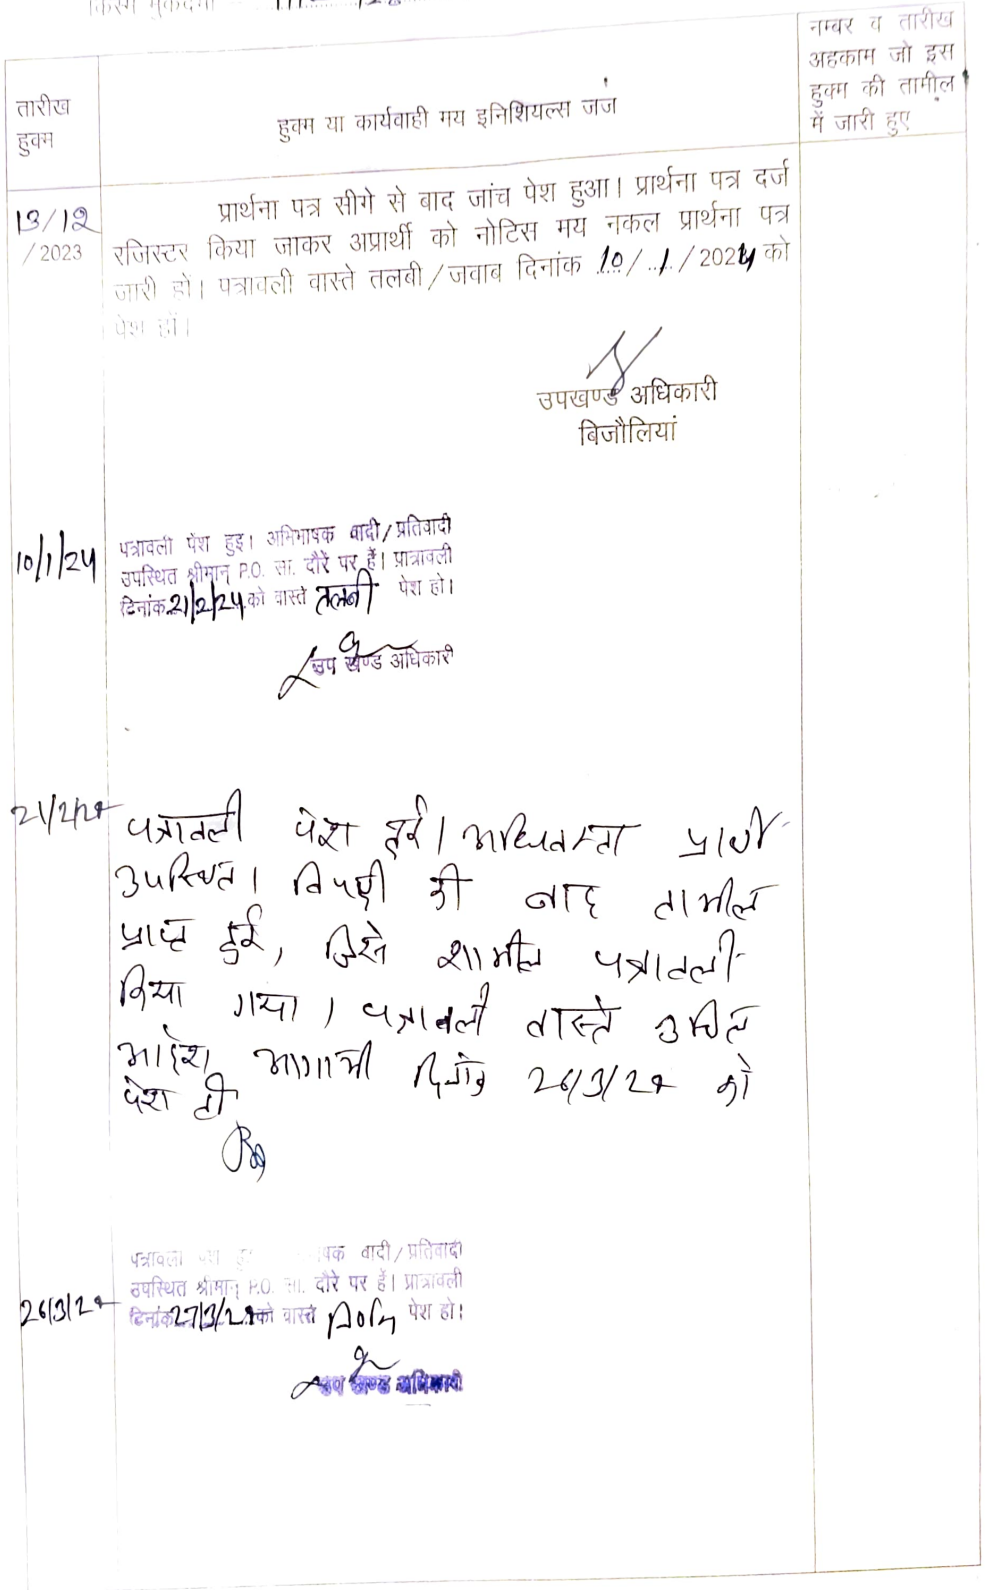 किस्म मुकदमा
तारीख
हुक्म
हुक्म या कार्यवाही मय इनिशियल्स जज
नम्बर व तारीख
अहकाम जो इस
हुक्म की तामील
में जारी हुए
13/12
/2023
प्रार्थना पत्र सीगे से बाद जांच पेश हुआ। प्रार्थना पत्र दर्ज
रजिस्टर किया जाकर अप्रार्थी को नोटिस मय नकल प्रार्थना पत्र
जारी हो। पत्रावली वास्ते तलबी/जवाब दिनांक 10/1/2024 को
पेश हो।
उपखण्ड अधिकारी
बिजौलियां
10/1/24
पत्रावली पेश हुइ। अभिभाषक वादी/प्रतिवादी
उपस्थित श्रीमान् P.O. सा. दौरे पर हैं। प्रात्रावली
दिनांक 21/2/24 को वास्ते तलबी पेश हो।
उप खण्ड अधिकारी
21/2/24
पत्रावली पेश हुई। अधिवक्ता प्रार्थी
उपस्थित। विपक्षी की बाद तामील
प्राप्त हुई, जिसे शामील पत्रावली
किया गया। पत्रावली वास्ते उचित
आदेश आगामी दिनांक 26/3/24 को
पेश हो
26/3/24
पत्रावली पेश वादी/प्रतिवादी
उपस्थित श्रीमान् P.O. सा. दौरे पर हैं। प्रात्रावली
दिनांक 27/3/24 को वास्ते पेश हो।
उप खण्ड अधिकारी